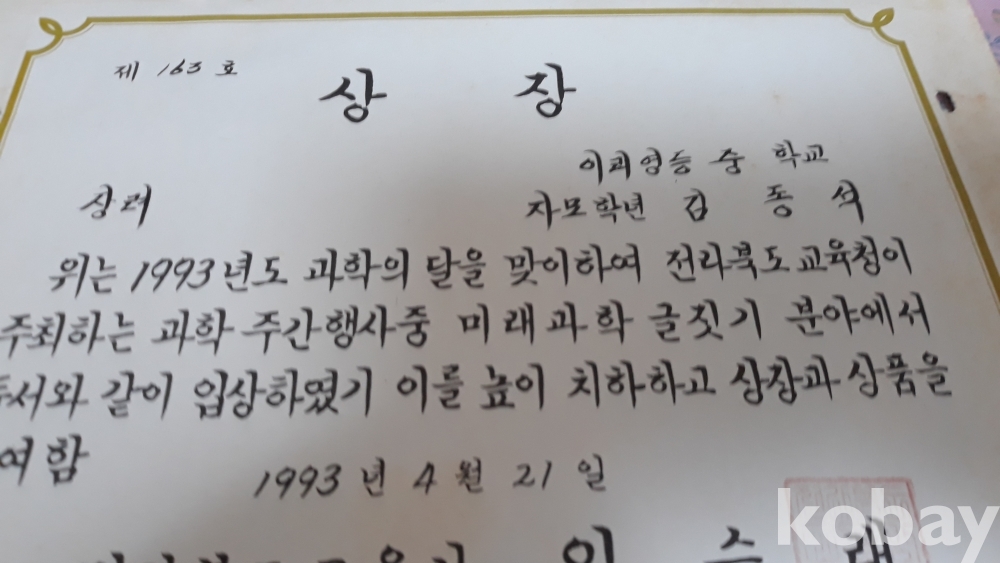 제 163 호
상 장
이리영등 중 학교
장려
김 종 석
위는 1993년도 과학의 달을 맞이하여 전라북도교육청이
주최하는 과학 주간행사중 미래과학 글짓기 분야에서
두서와 같이 입상하였기 이를 높이 치하하고 상장과 상품을
여함
1993 년 4 월 21 일
kobay